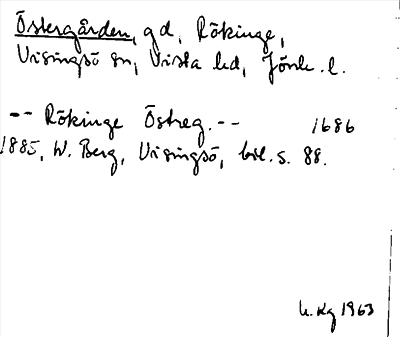 Östergården, gd, Rökinge,
Visingsö sn, Vista hd, Jönk. l.
-- Rökinge Östreg. -- 1686
1885, W. Berg, Visingsö, bil. s. 88.
h. Kg 1963